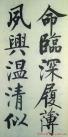 命臨深履薄
夙興温清似